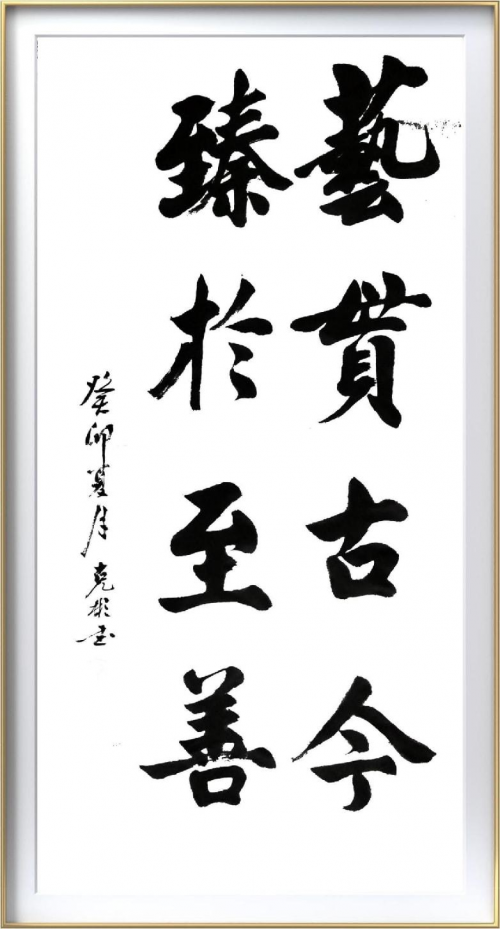 藝貫古今
臻於至善
癸卯夏月 克彬書